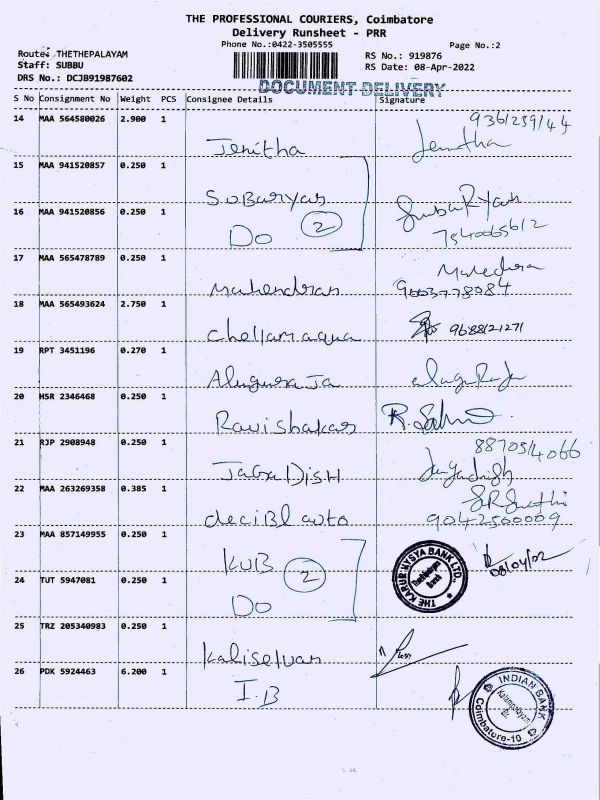 THE PROFESSIONAL COURIERS, Coimbatore
Delivery Runsheet - PRR
Phone No.:0422-3505555
Page No.:2
Route: THETHEPALAYAM
Staff: SUBBU
DRS No.: DCJB91987602
RS No.: 919876
RS Date: 08-Apr-2022
DOCUMENT DELIVERY
S No Consignment No Weight PCS Consignee Details Signature
14 MAA 564580026 2.900 1
Jenitha
15 MAA 941520857 0.250 1
Subaryas
16 MAA 941520856 0.250 1
Do 2
7540065612
17 MAA 565478789 0.250 1
Mahendran 9003778084
18 MAA 565493624 2.750 1
9688121271
19 RPT 3451196 0.270 1
20 HSR 2346468 0.250 1
Ravishakar
21 RJP 2908948 0.250 1
JagaDISH
22 MAA 263269358 0.385 1
deciBl auto 9042500009
23 MAA 857149955 0.250 1
KVB 2
THE KARUR VYSYA BANK LTD.
08/04/02
24 TUT 5947081 0.250 1
Do
25 TRZ 205340983 0.250 1
Kaliselvan
26 PDK 5924463 6.200 1
I.B
INDIAN BANK
Coimbatore-10